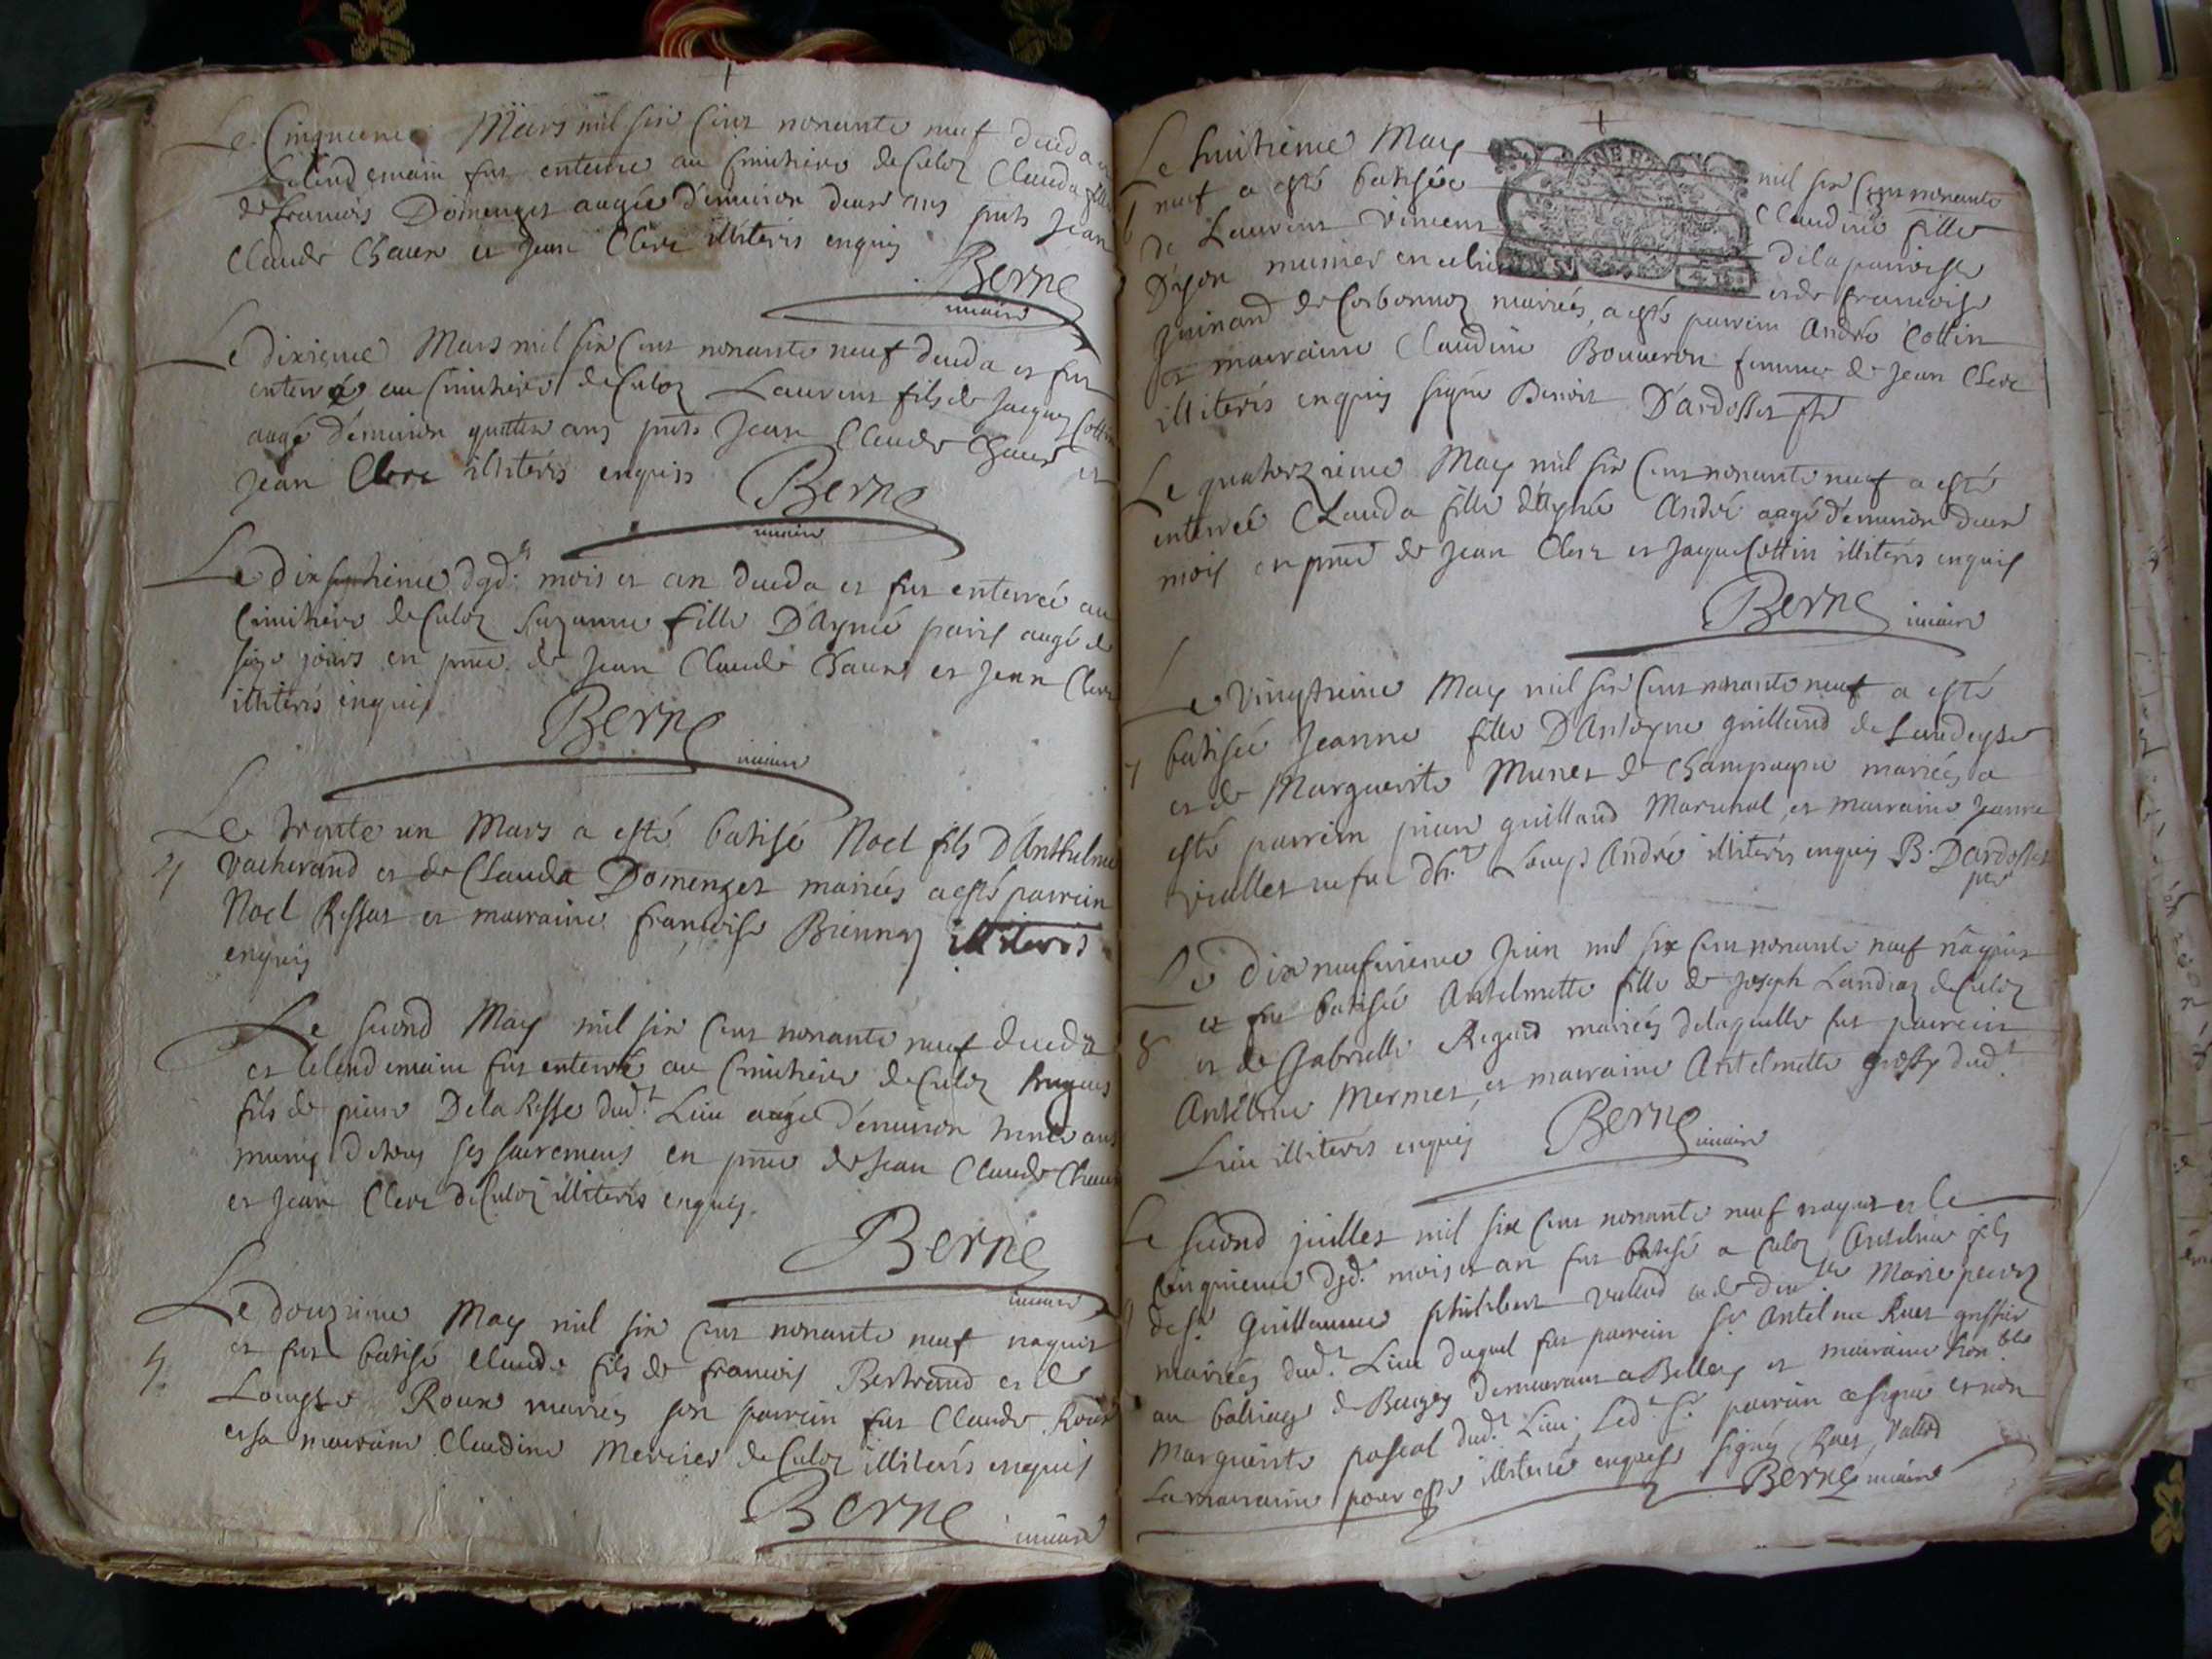 Le Cinquieme Mars mil six Cens nonante neuf deceda et
Le lendemain fut enterree au Cimitiere de Culoz Clauda fille
de francois Domenget aagée d'environ deux ans pnts Jean
Claude Chaven et Jean Clerc illiterés enquis
Berne
vicaire
Le dixieme Mars mil six Cens nonante neuf deceda et fut
enterré au Cimitiere de Culoz Laurent fils de Jacques Cottin
aagé d'environ quattre ans pnts Jean Claude Chaven et
Jean Clerc illiterés enquis
Berne
vicaire
Le dix septieme dqd. mois et an deceda et fut enterrée au
Cimitiere de Culoz Suzanne fille D'Aymé paris aagé de
seize jours en pnce de Jean Claude Chaven et Jean Clerc
illiterés enquis
Berne
vicaire
Le trente un Mars a esté batisé Noel fils D'Anthelme
4 Vacherand et de Clauda Domenget mariés a esté parrein
Noel Ressat et marraine françoise Biennaz illiterés
enquis
Le second May mil six Cens nonante neuf deceda
et le lendemain fut enterré au Cimitiere de Culoz
fils de piere De la Resse dud.t Lieu aagé d'environ trente ans
munis de tous ses sacremens en pnce de Jean Claude Chaven
et Jean Clerc de Culoz illiterés enquis.
Berne
vicaire
Le douzieme May mil six Cens nonante neuf naquit
5 et fut batisé Claude fils de francois Bertrand et de
Louyse Roux mariés son parrein fut Claude Roux
et sa marraine Claudine Mercier de Culoz illiterés enquis
Berne vicaire
Le huitieme May mil six Cens nonante
6 neuf a esté batisée Claudine fille
de Laurent Vincent de la parroisse
D'yon munier en et de francoise
Juinand de Corbonnoz mariés, a esté parrein André Cottin
et marraine Claudine Bouveron femme de Jean Clerc
illiterés enquis signé Benoit D'ardosset
Le quatorzieme May mil six Cens nonante neuf a esté
enterrée Clauda fille d'Aymé André aagé d'environ deux
mois en pnce de Jean Clerc et Jaque Cottin illiterés enquis
Berne vicaire
Le vingtieme May mil six Cens nonante neuf a esté
7 batisée Jeanne fille D'Antoyne guilland de Landeyse
et de Marguerite Munet de Champagne mariés a
esté parrein piere guilland Marechal, et marraine Jeanne
viallet André illiterés enquis B. Dardosset
Le dix neufvieme Juin mil six Cens nonante neuf naquit
8 et fut batisée Antelmette fille de Joseph Landraz de Culoz
et de Gabrielle Regard mariés de laquelle fut parrein
Antelme Mermet, et marraine Antelmette grossy dud.t
Lieu illiterés enquis Berne vicaire
Le second juillet mil six Cens nonante neuf naquit et le
cinquieme dqd. mois et an fut batisé a Culoz Antelme fils
de S.r Guillaume philibert vallod et de Marie
mariés dud.t Lieu duquel fut parrein S.r Antelme Ruet greffier
au balliage de Bugey demeurant a Belley et marraine hon.ble
Marguerite pascal dud.t Lieu; Led.t S.r parrein a signé et non
La marraine pour estre illiterée enquise signés Ruet, Vallod
Berne vicaire